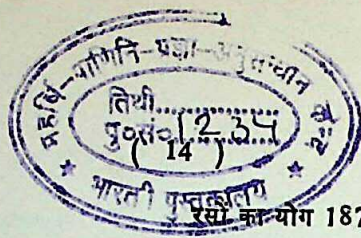 महर्षि-पाणिनि-प्रज्ञा-अनुसन्धान केन्द्र
तिथी..............
पु०सं० 1234
( 14 )
* भारती पुस्तकालय *
रसों का योग 187